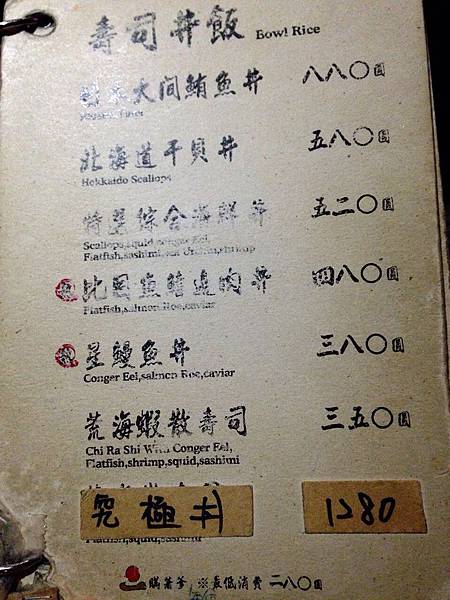 壽司丼飯 Bowl Rice
大间鮪魚丼 八八〇圓
北海道干貝丼 五八〇圓
Hokkaido Scallops
特選綜合海鮮丼 五二〇圓
Scallops,squid,conger Eel,
Flatfish,sashimi,shrimp
比目魚鰭邊肉丼 四八〇圓
Flatfish,salmon Roe,caviar
星鰻魚丼 三八〇圓
Conger Eel,salmon Roe,caviar
荒海蝦散壽司 三五〇圓
Chi Ra Shi With Conger Eel,
Flatfish,shrimp,squid,sashimi
究極丼 1280
Flatfish,squid,sashimi
瞞著爹 ※最低消費 二八〇圓